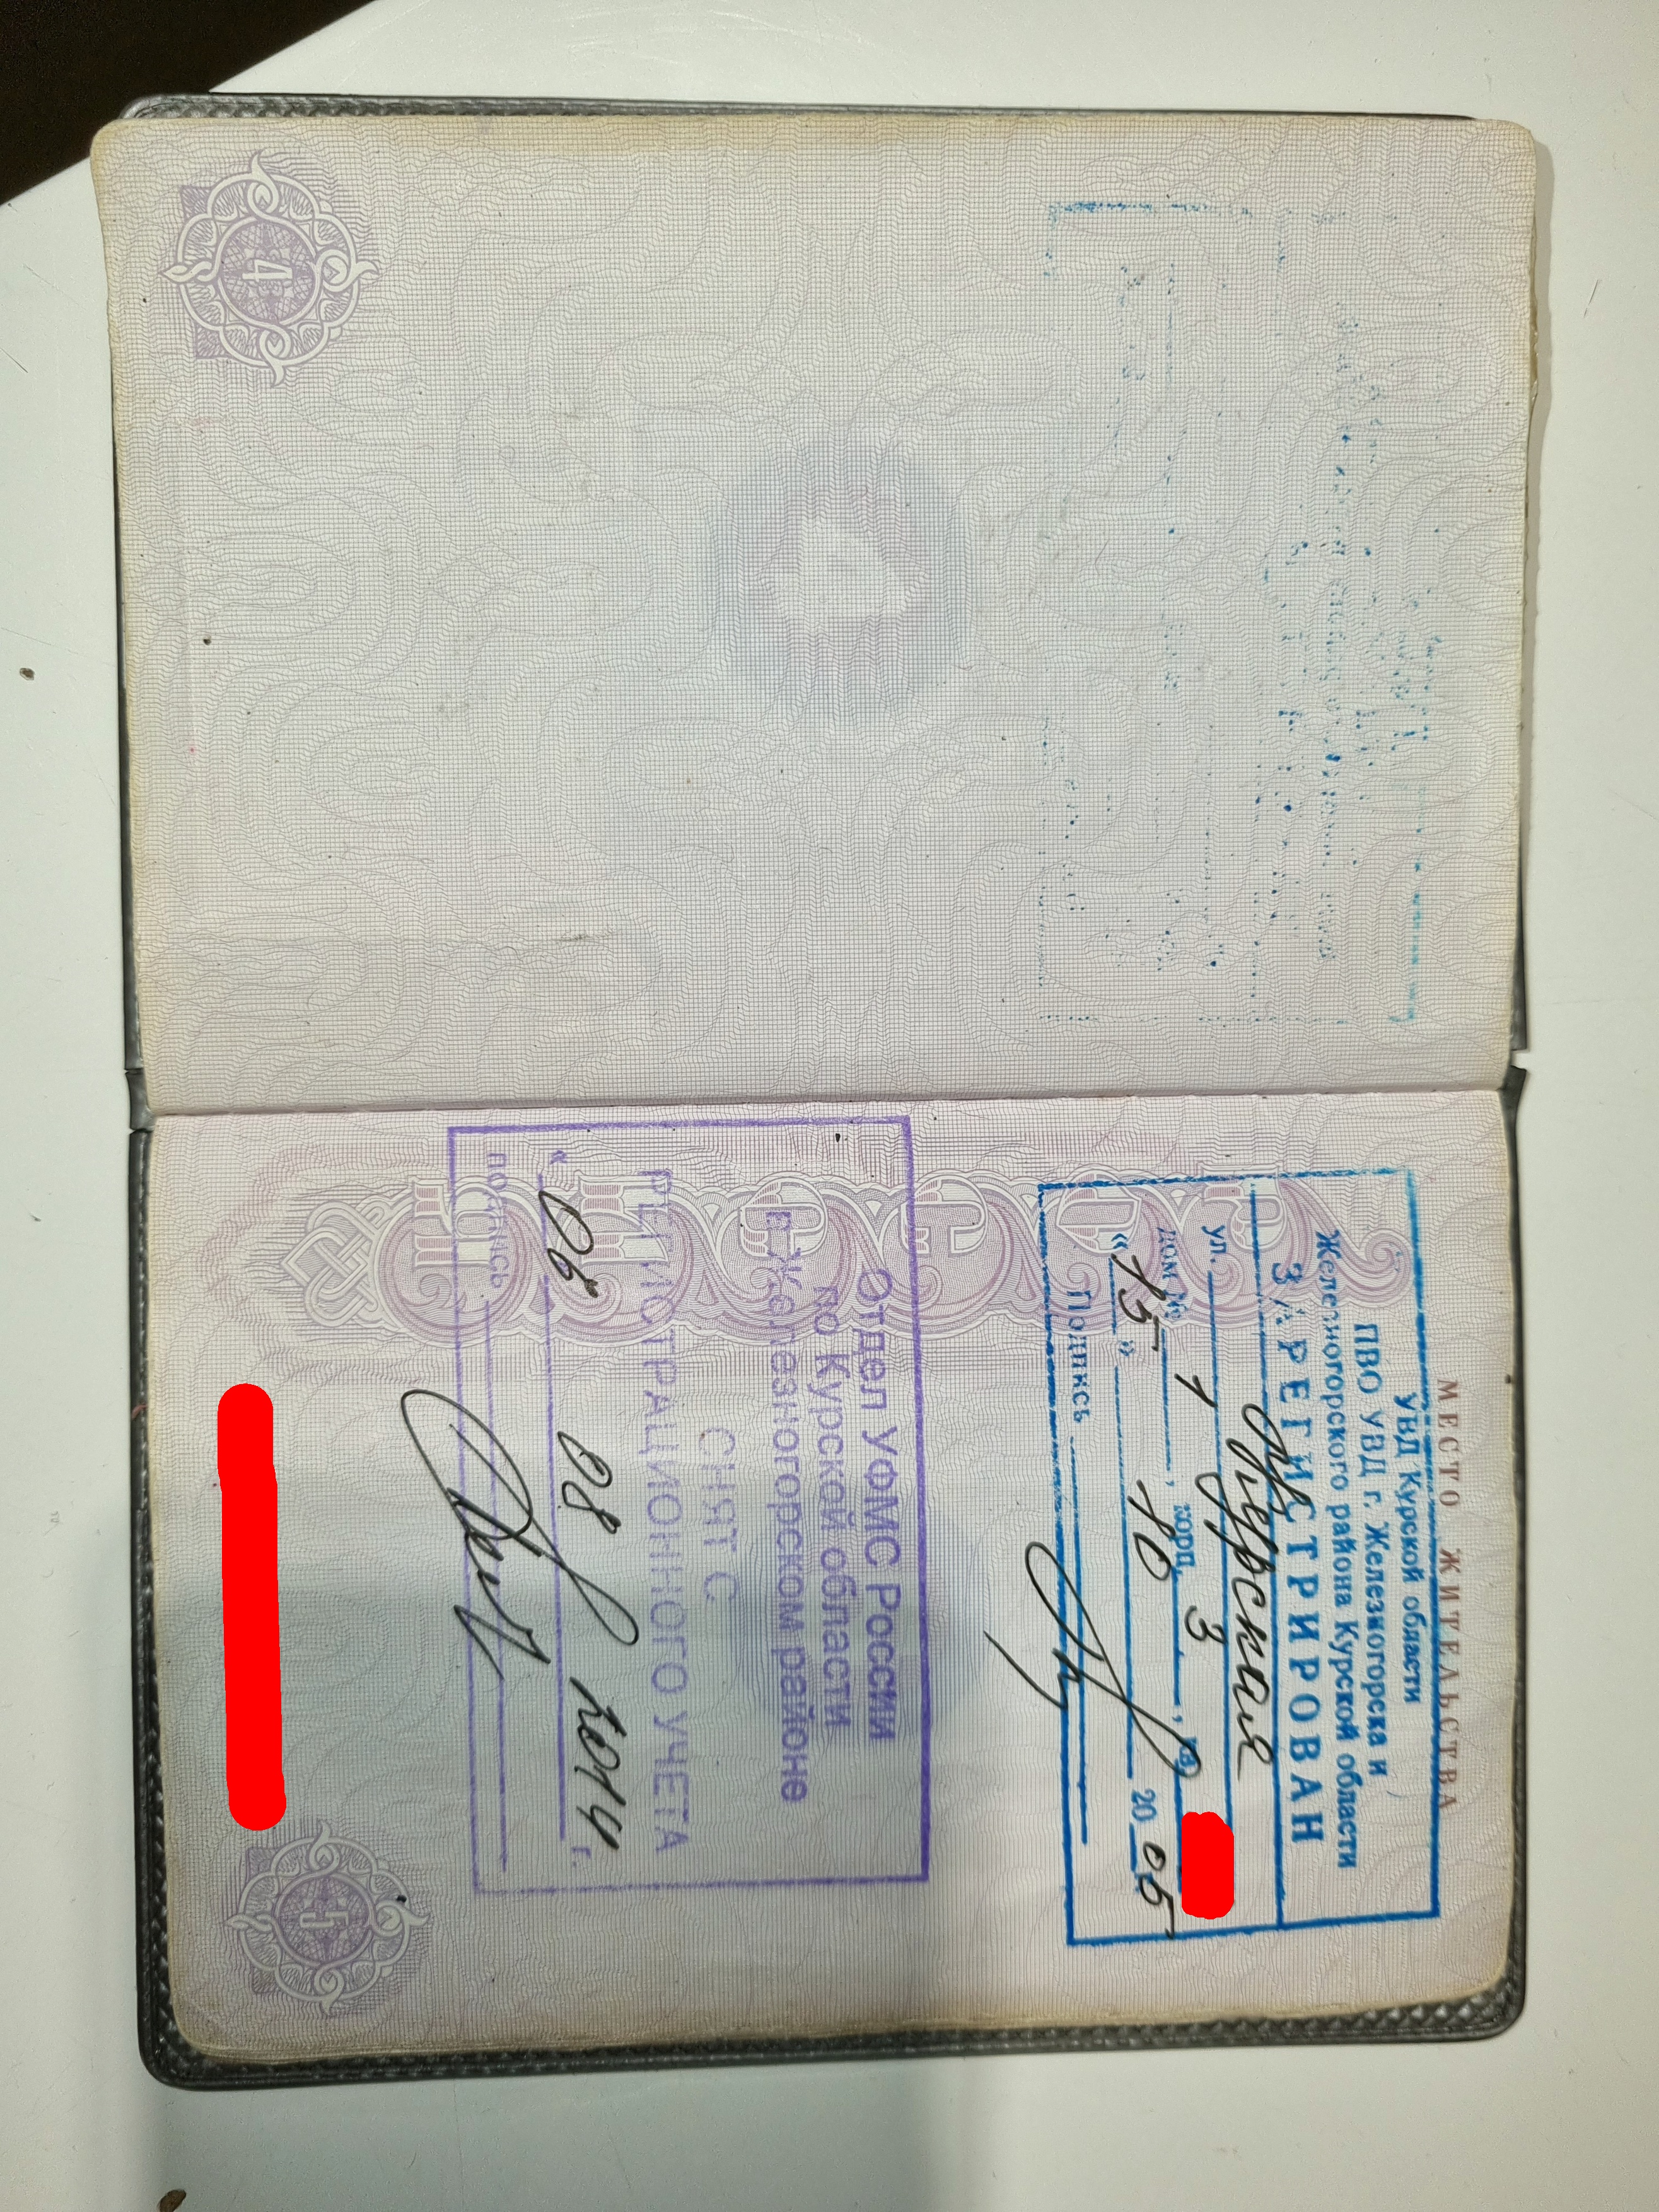 4
МЕСТО ЖИТЕЛЬСТВА
УВД Курской области
ПВО УВД г. Железногорска и
Железногорского района Курской области
ЗАРЕГИСТРИРОВАН
ул. Курская
дом № 1, корп. 3, кв.
«15» 10 2005
Подпись
Отдел УФМС России
по Курской области
в Железногорском районе
СНЯТ С
РЕГИСТРАЦИОННОГО УЧЕТА
« 06 08 2014 г.
подпись
5